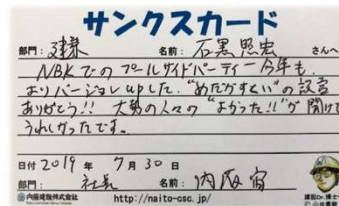 サンクスカード
部門: 建築 名前: 石黒照忠 さんへ
NBKでのプールサイドパーティー今年も
よりバージョンupした、"めだかすくい"の設営
ありがとう!! 大勢の人々の"よかった!!"が聞けて
うれしかったです。
日付 2019年 7月30日
部門: 社長 名前: 内
内藤建設株式会社 http://naito-csc.jp/